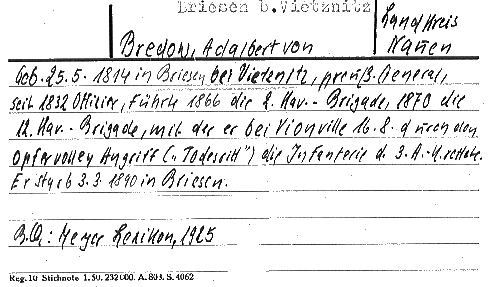 Briesen b. Vietznitz
Landkreis
Bredow, Adalbert von Nauen
Geb. 25.5.1814 in Briesen bei Vietznitz, preuß. General,
seit 1832 Offizier, führte 1866 die 2. Kav.-Brigade, 1870 die
12. Kav.-Brigade, mit der er bei Vionville 16.8. durch den
opfervollen Angriff („Todesritt") die Infanterie d. 3. A.-K. rettete.
Er starb 3.3.1890 in Briesen.
B.Q.: Meyer Lexikon, 1925
Reg. 10 Stichnote 1. 50. 232000. A. 803. S. 4062